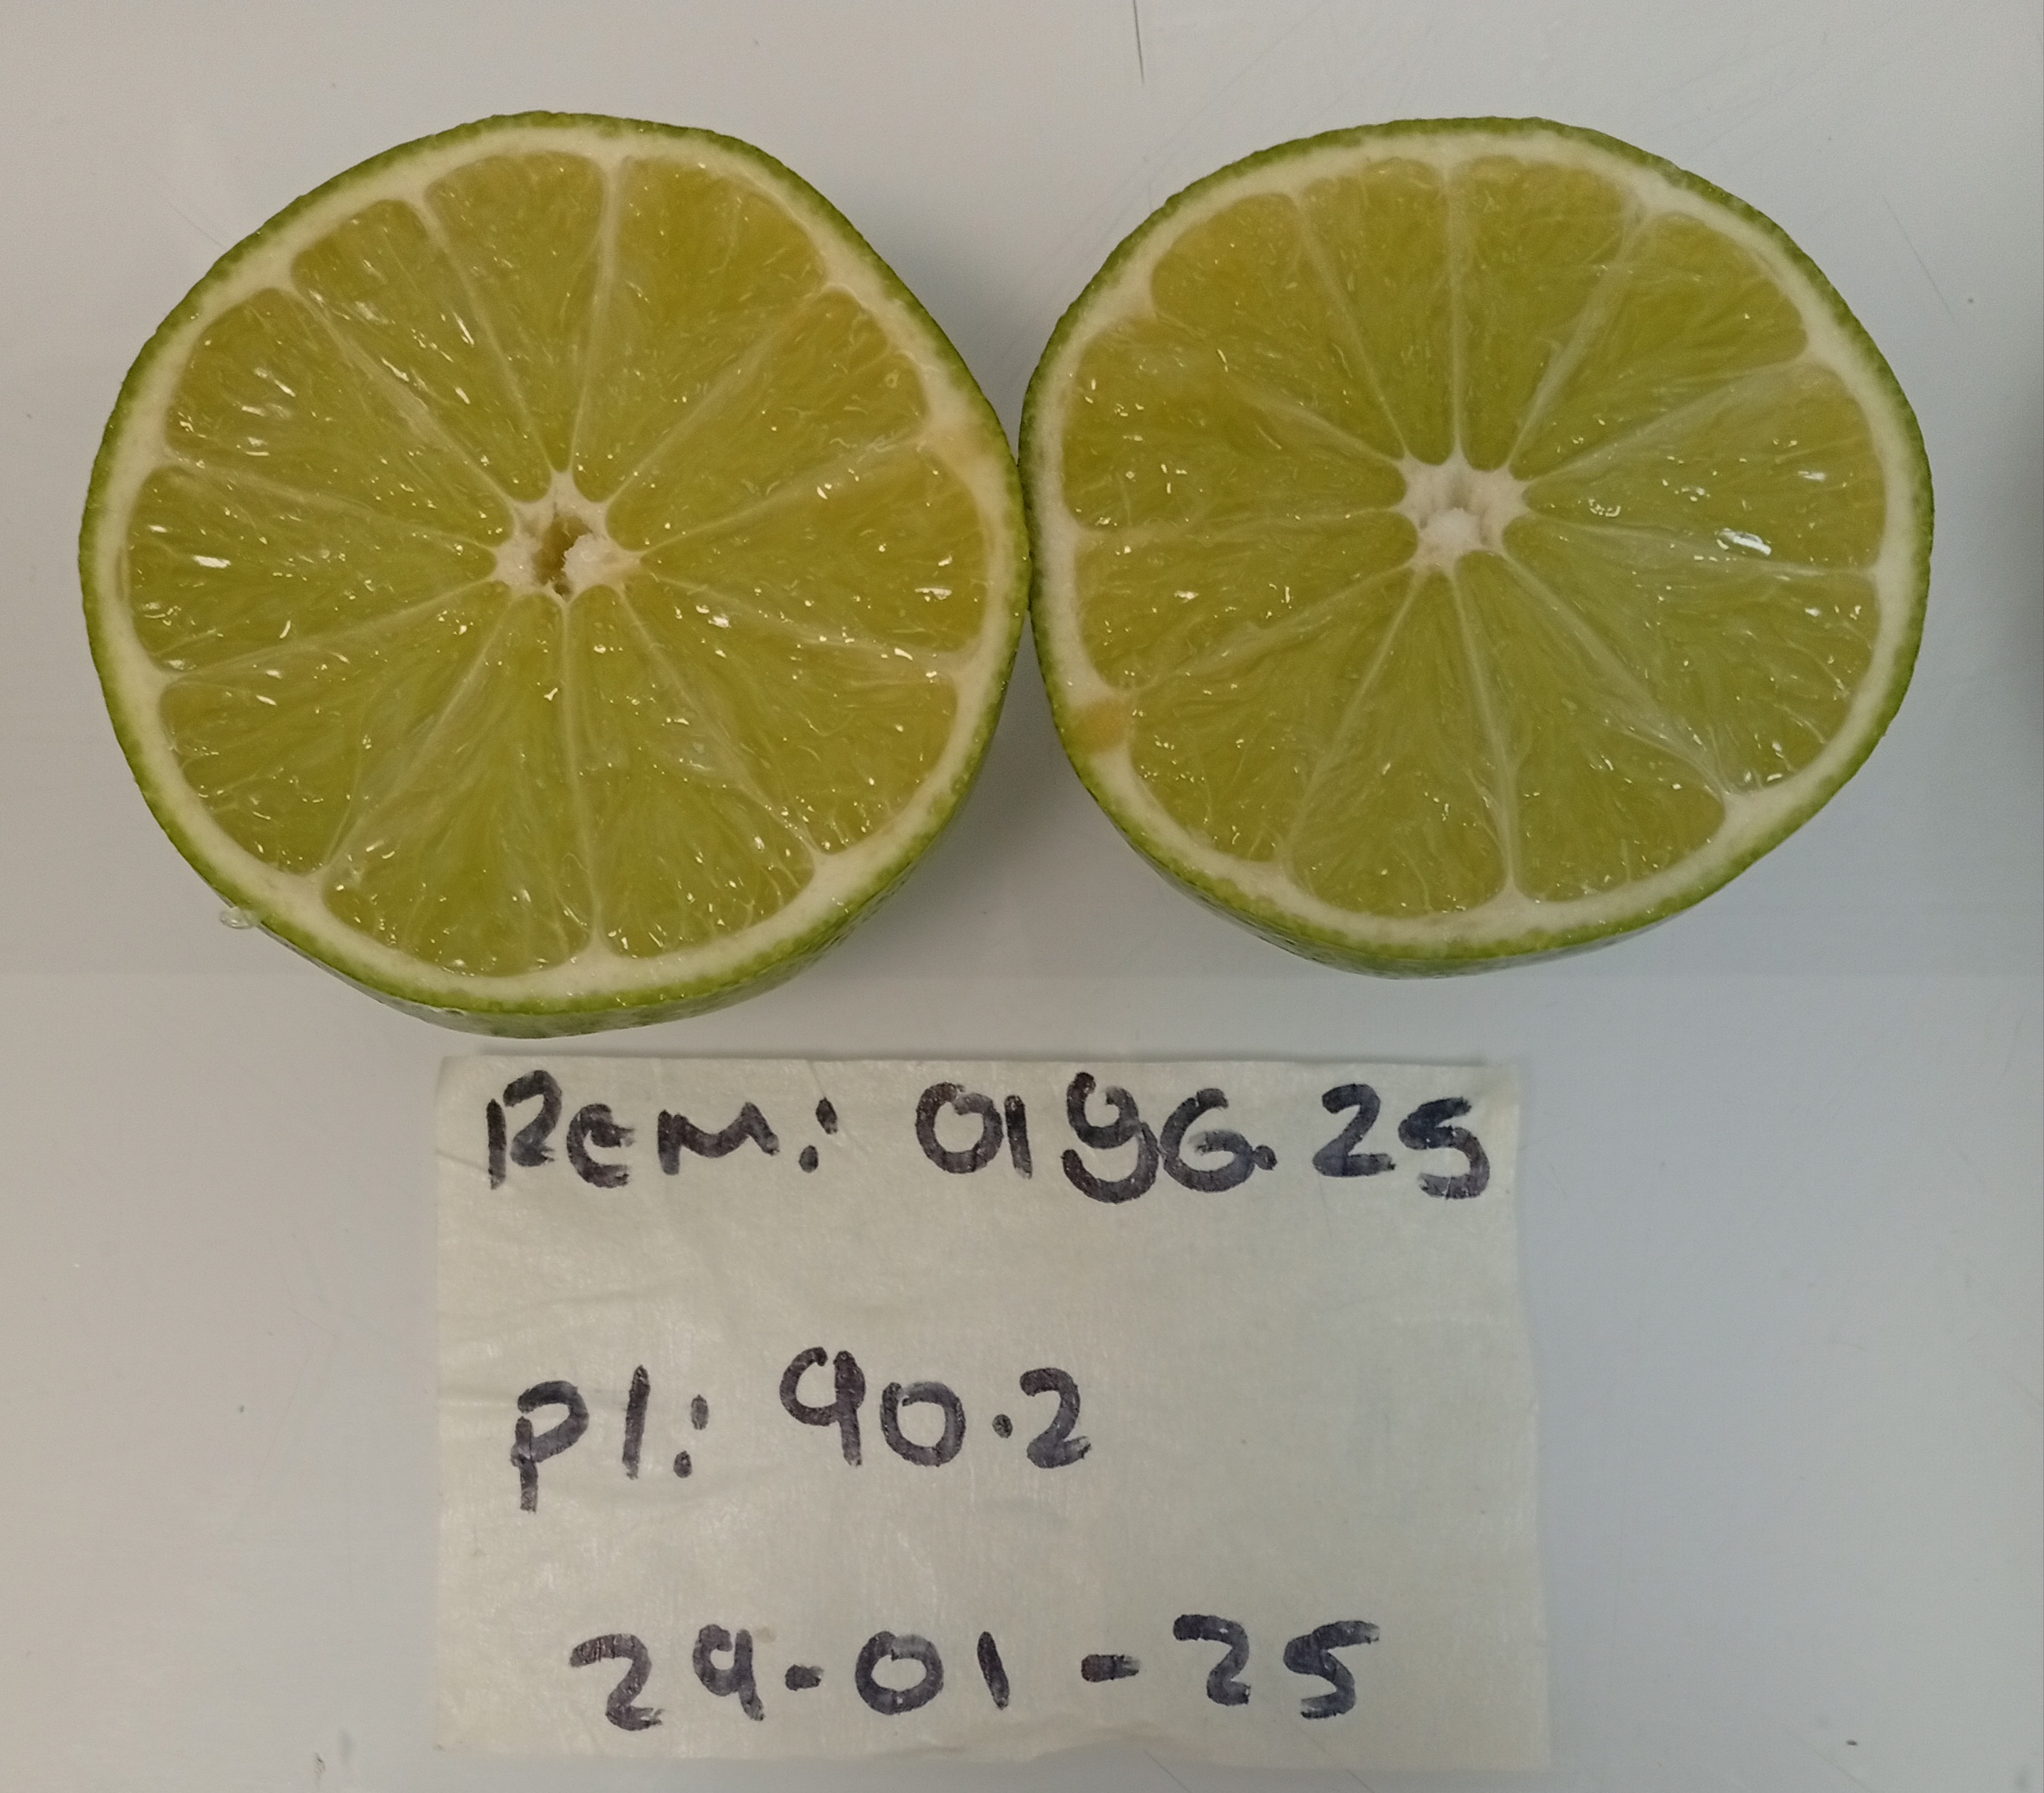 Rem: 0196.25
Pl: 90.2
29-01-25